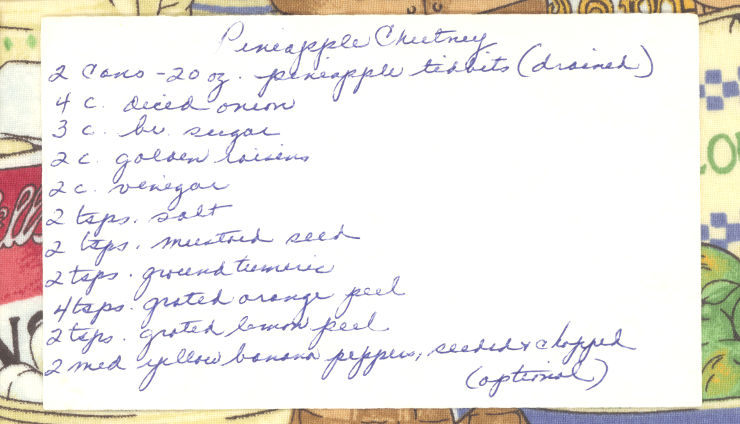 Pineapple Chutney
2 Cans - 20 oz. pineapple tidbits (drained)
4 c. diced onion
3 c. br. sugar
2 c. golden raisins
2 c. vinegar
2 tsps. salt
2 tsps. mustard seed
2 tsps. ground tumeric
4 tsps. grated orange peel
2 tsps. grated lemon peel
2 med yellow banana peppers, seeded & chopped
(optional)